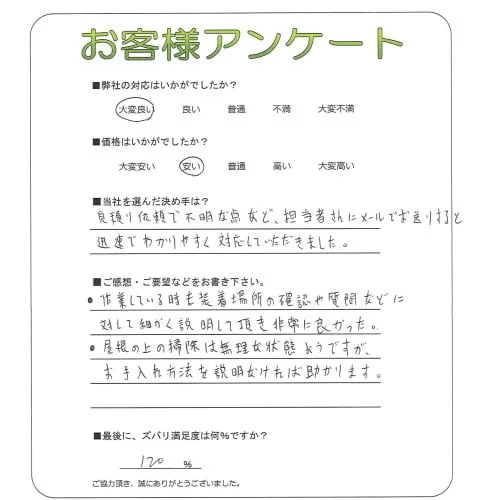 お客様アンケート
■弊社の対応はいかがでしたか?
大変良い 良い 普通 不満 大変不満
■価格はいかがでしたか?
大変安い 安い 普通 高い 大変高い
■当社を選んだ決め手は?
見積り依頼で不明な点など、担当者さんにメールでお送りすると
迅速でわかりやすく対応していただきました。
■ご感想・ご要望などをお書き下さい。
・作業している時も装着場所の確認や質問などに
対して細かく説明して頂き非常に良かった。
・屋根の上の掃除は無理な状態ようですが、
お手入れ方法を説明なければ助かります。
■最後に、ズバリ満足度は何%ですか?
120 %
ご協力頂き、誠にありがとうございました。